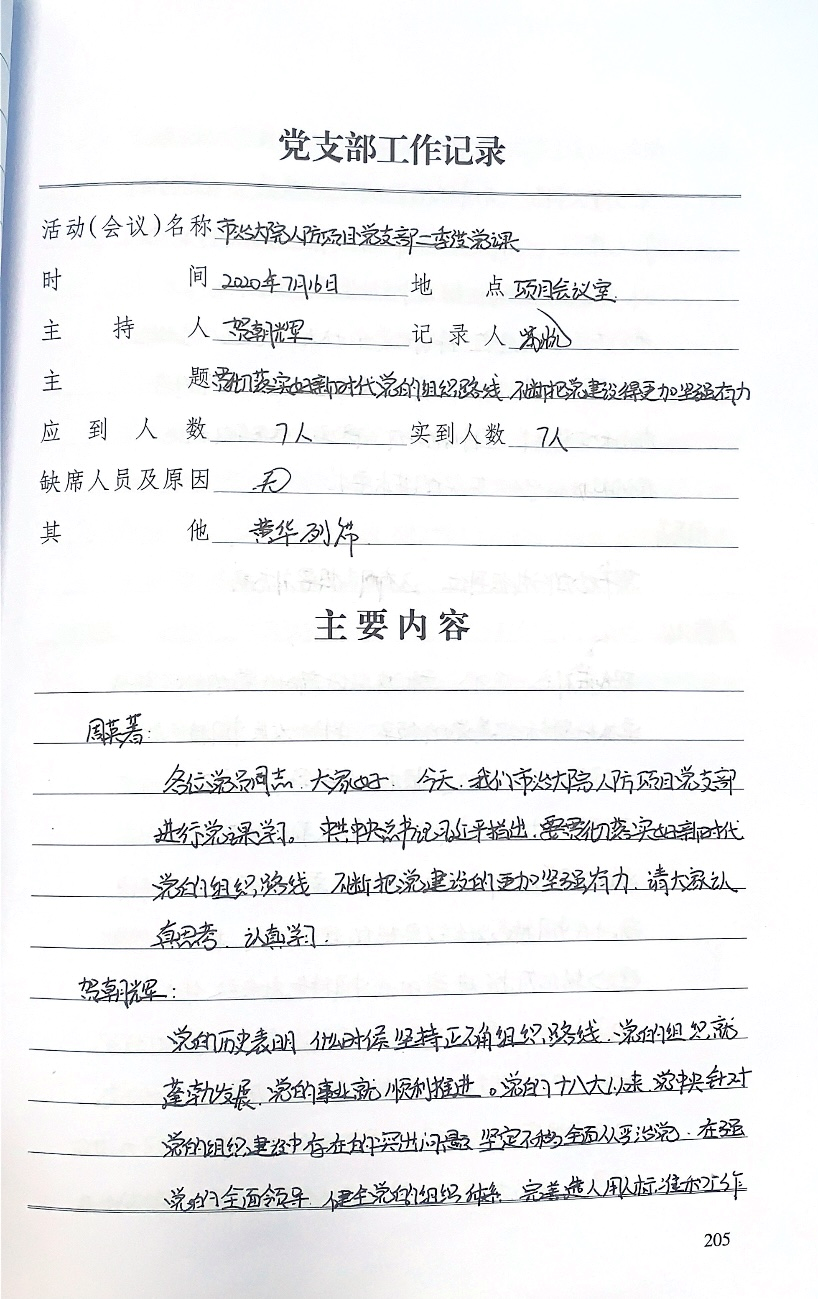 党支部工作记录
活动(会议)名称 市治大院人防项目党支部二季度党课
时间 2020年7月16日 地点 项目会议室
主持人 贺朝辉 记录人
主题 贯彻落实好新时代党的组织路线 不断把党建设得更加坚强有力
应到人数 7人 实到人数 7人
缺席人员及原因 无
其他 黄华列席
主要内容
周英著：
各位党员同志，大家好．今天，我们市治大院人防项目党支部
进行党课学习。中共中央总书记习近平指出，要贯彻落实好新时代
党的组织路线 不断把党建设的更加坚强有力，请大家认
真思考，认真学习．
贺朝辉：
党的历史表明 什么时侯坚持正确组织路线，党的组织就
蓬勃发展，党的事业就顺利推进。党的十八大以来，党中央针对
党的组织建设中存在的突出问题 坚定不移全面从严治党．在强
党的全面领导 健全党的组织体系 完善选人用人标准和工作
205